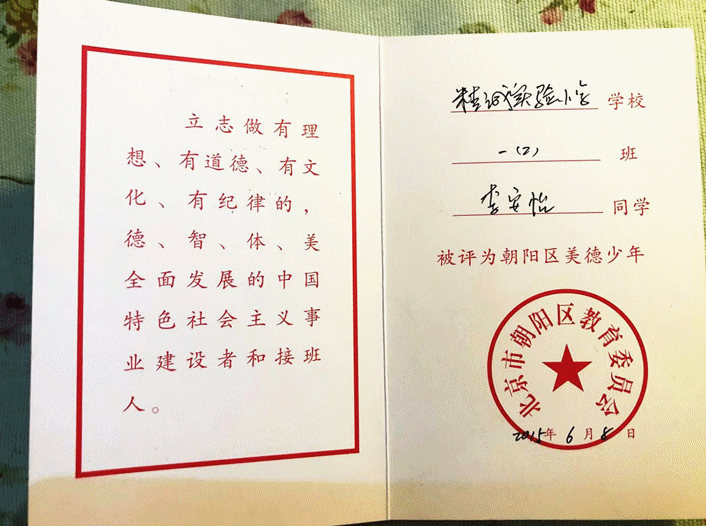 立志做有理
想、有道德、有文
化、有纪律的，
德、智、体、美
全面发展的中国
特色社会主义事
业建设者和接班
人。
精诚实验小学 学校
一(2) 班
李安怡 同学
被评为朝阳区美德少年
北京市朝阳区教育委员会
2015年6月8日